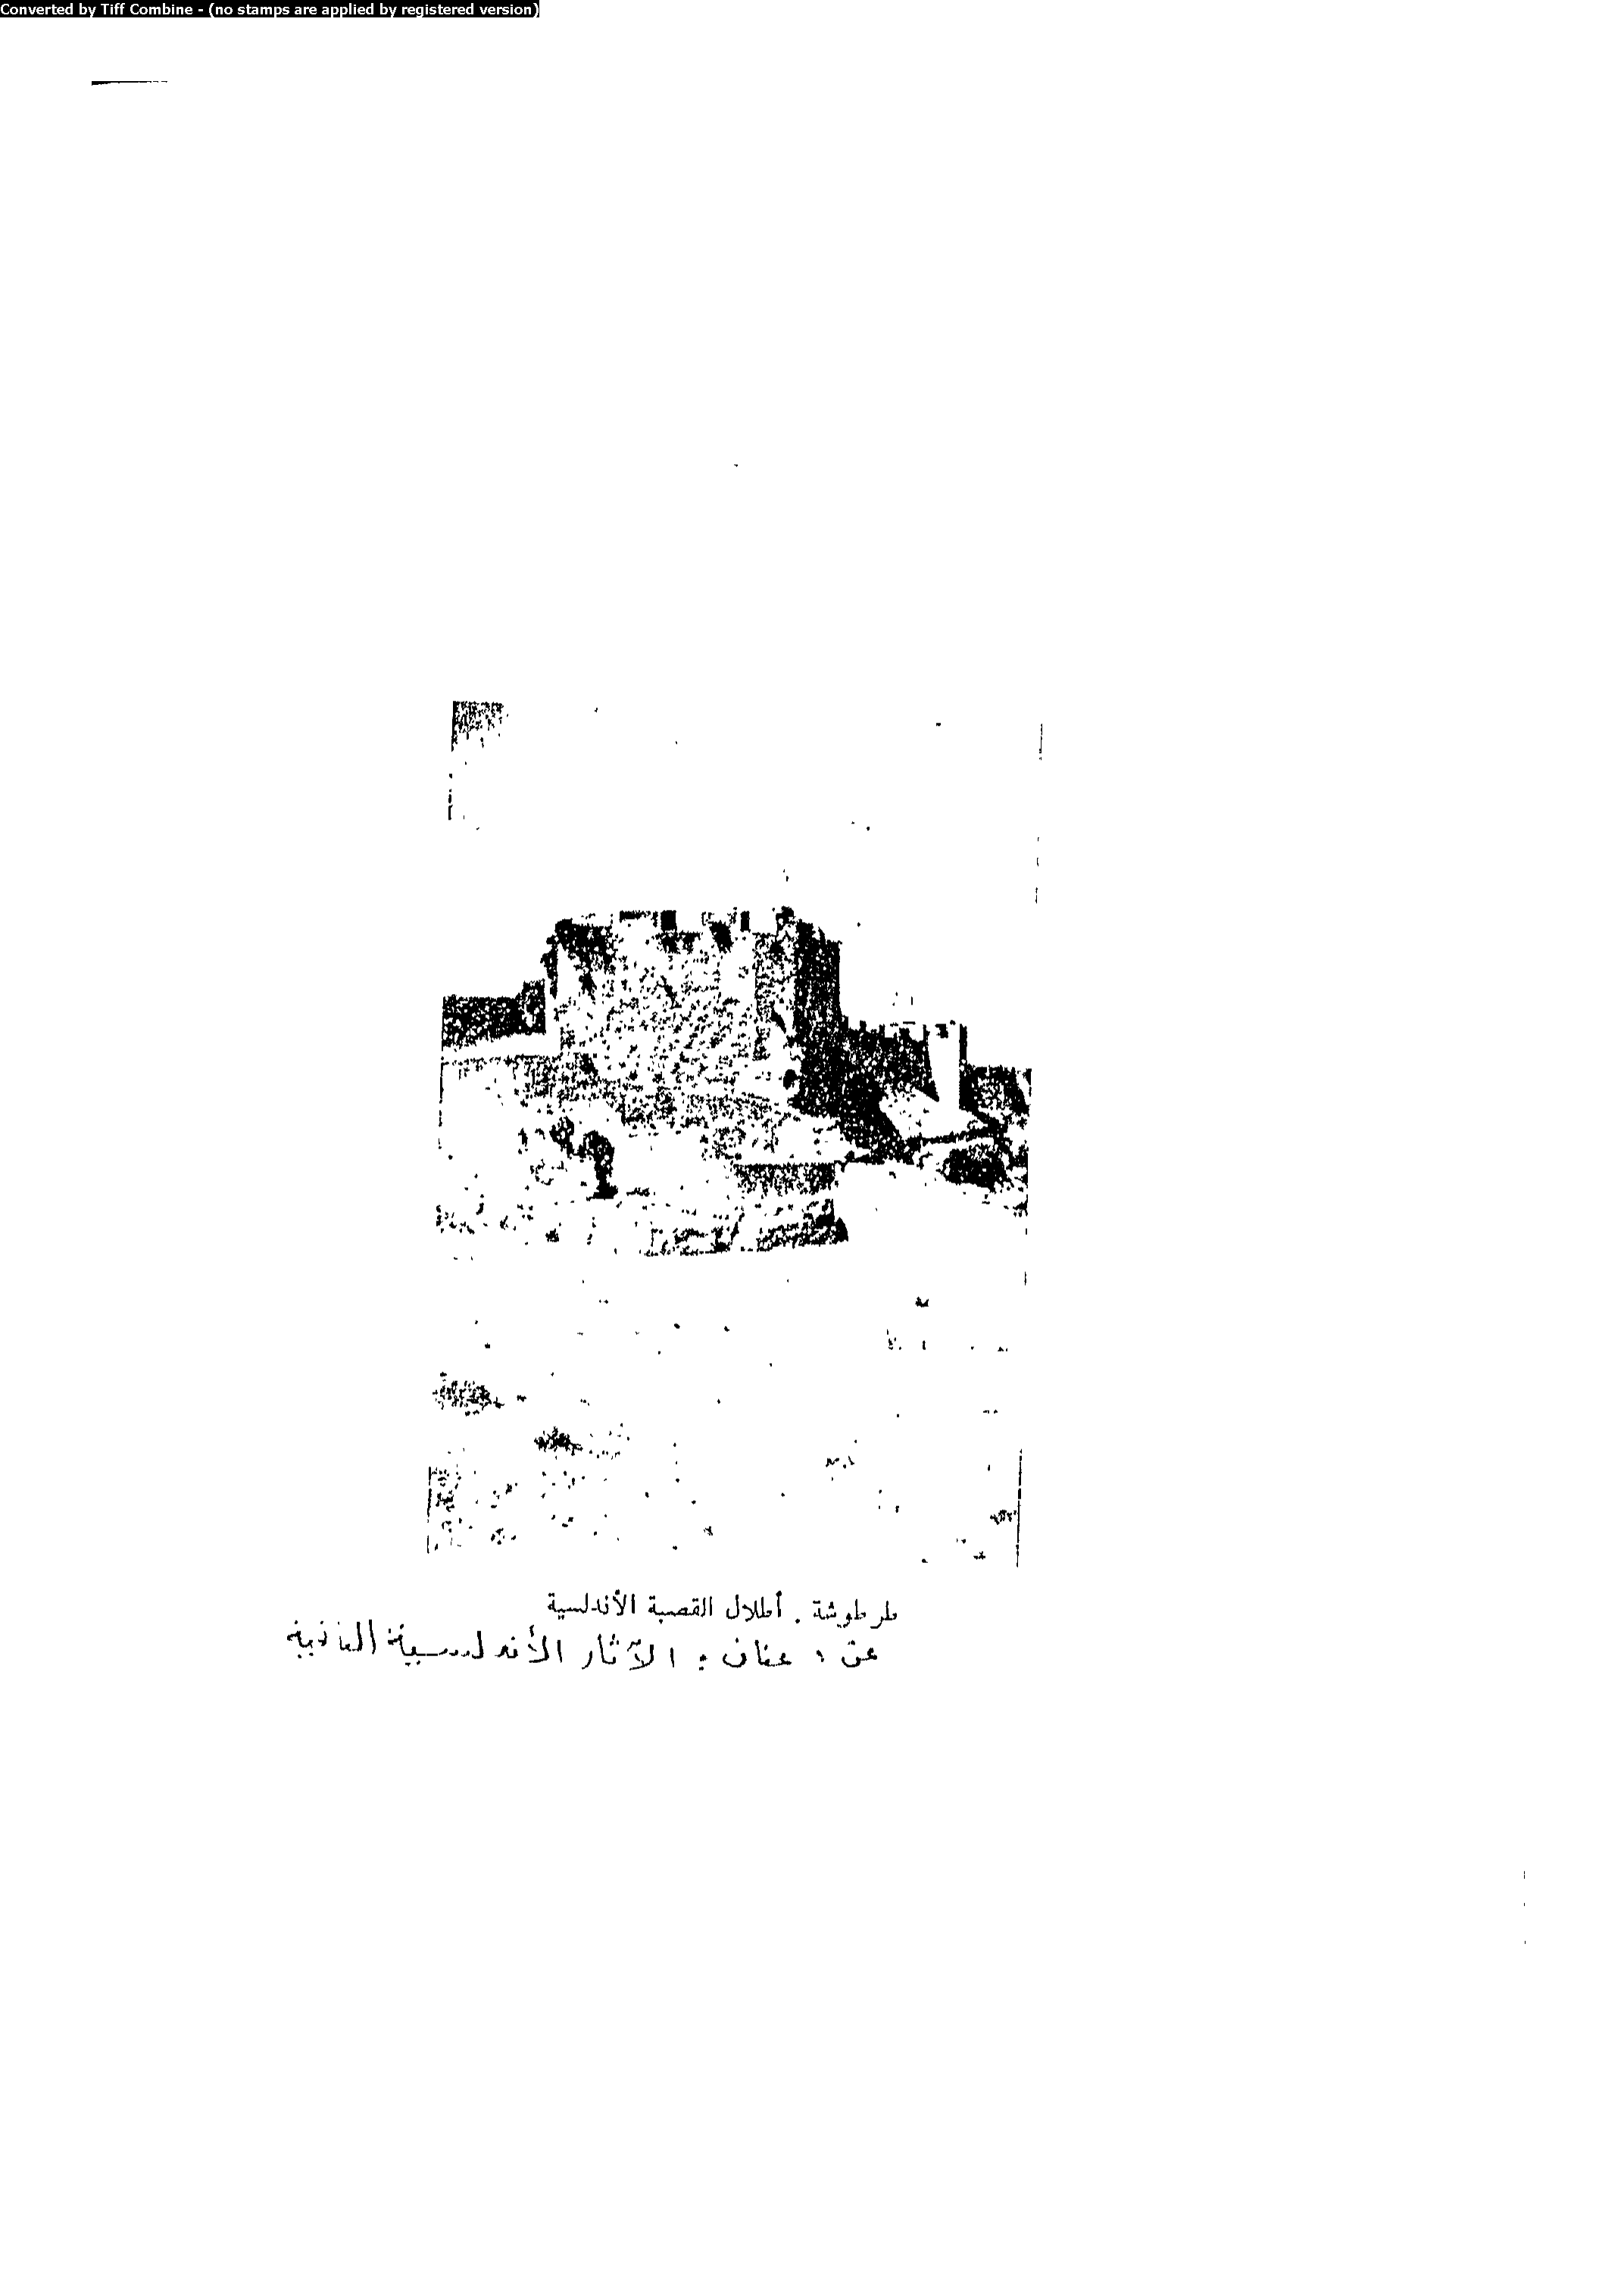 Converted by Tiff Combine - (no stamps are applied by registered version)
طرطوشة . أطلال القصبة الأندلسية
عن : عنان : الآثار الأندلسية الباقية